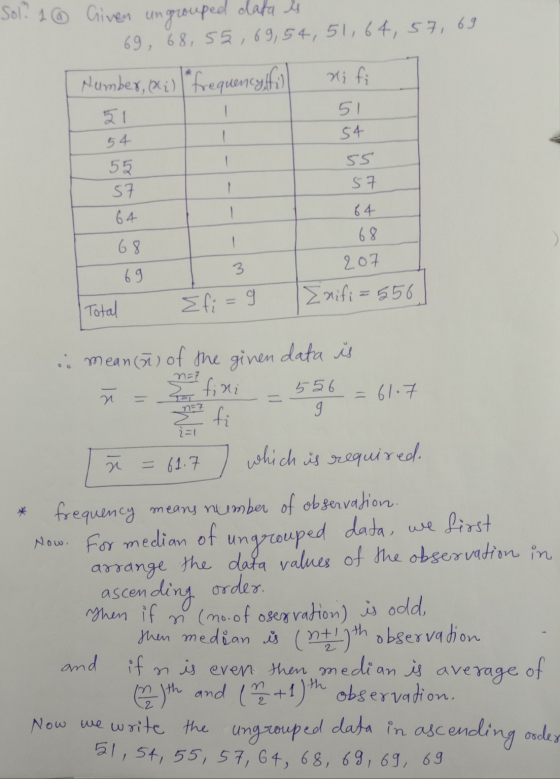 Solⁿ. 1 ⓐ Given ungrouped data is
69, 68, 55, 69, 54, 51, 64, 57, 69
Number, (xi) *frequency(fi) xi fi
51 1 51
54 1 54
55 1 55
57 1 57
64 1 64
68 1 68
69 3 207
Total Σfi = 9 Σxifi = 556
∴ mean (x̄) of the given data is
x̄ = Σ fixi / Σ fi = 556/9 = 61.7
x̄ = 61.7 which is required.
* frequency means number of observation.
Now. For median of ungrouped data, we first
arrange the data values of the observation in
ascending order.
Then if n (no. of oservation) is odd,
then median is (n+1/2)th observation
and if n is even then median is average of
(n/2)th and (n/2 + 1)th observation.
Now we write the ungrouped data in ascending order
51, 54, 55, 57, 64, 68, 69, 69, 69